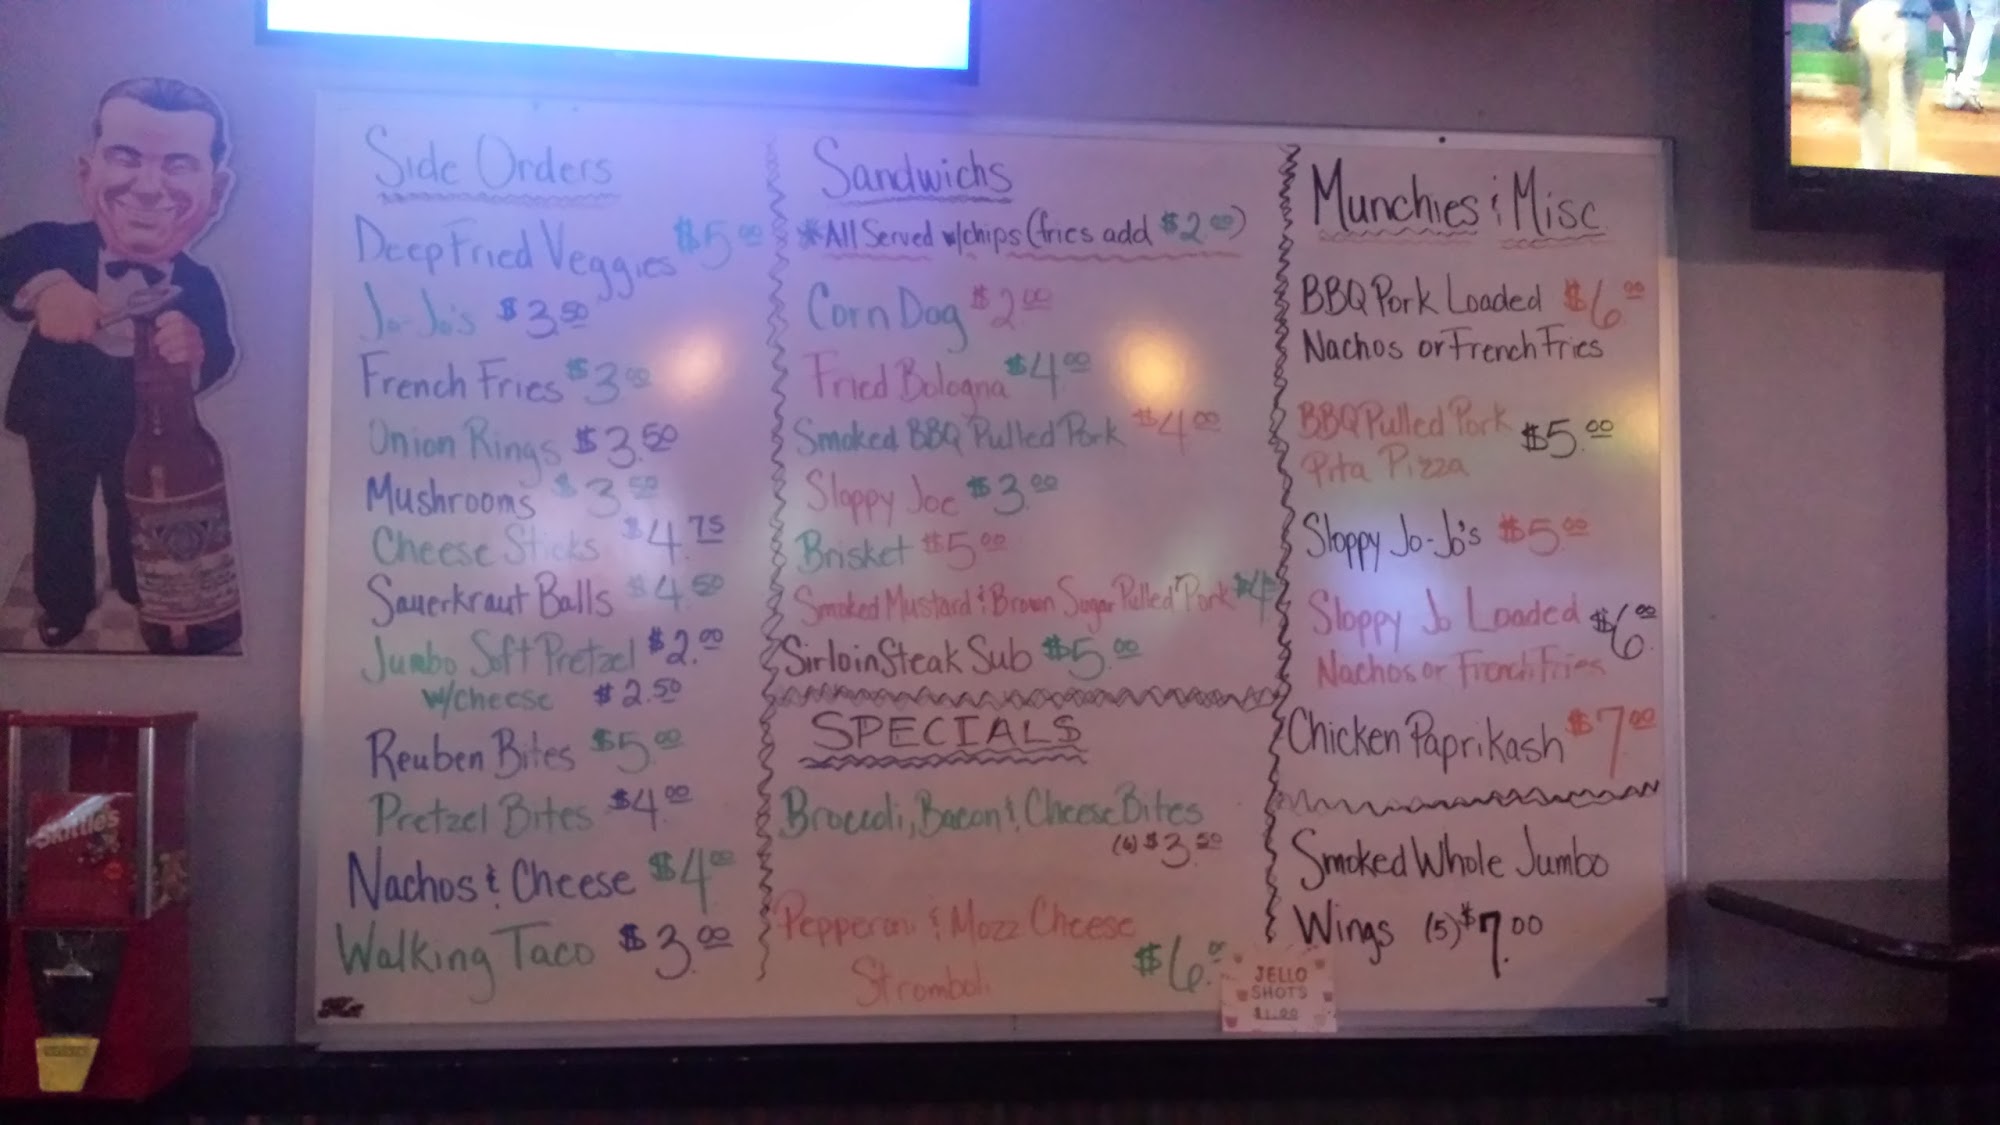 Side Orders
Deep Fried Veggies $5.00
Jo-Jo's $3.50
French Fries $3.00
Onion Rings $3.50
Mushrooms $3.50
Cheese Sticks $4.75
Sauerkraut Balls $4.50
Jumbo Soft Pretzel $2.00
w/cheese $2.50
Reuben Bites $5.00
Pretzel Bites $4.00
Nachos & Cheese $4.00
Walking Taco $3.00
Sandwichs
*All Served w/chips (fries add $2.00)
Corn Dog $2.00
Fried Bologna $4.00
Smoked BBQ Pulled Pork $4.00
Sloppy Joe $3.00
Brisket $5.00
Smoked Mustard & Brown Sugar Pulled Pork $4
Sirloin Steak Sub $5.00
SPECIALS
Broccoli, Bacon & Cheese Bites
(6) $3.50
Pepperoni & Mozz Cheese
Stromboli $6.00
Munchies & Misc
BBQ Pork Loaded $6.00
Nachos or French Fries
BBQ Pulled Pork
Pita Pizza $5.00
Sloppy Jo-Jo's $5.00
Sloppy Jo Loaded $6.00
Nachos or French Fries
Chicken Paprikash $7.00
Smoked Whole Jumbo
Wings (5) $7.00
JELLO
SHOTS
$1.00
Skittles